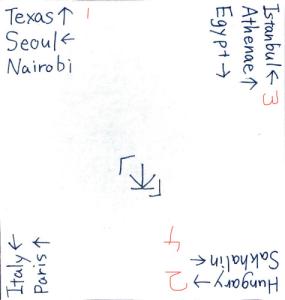 Texas↑ 1
Seoul←
Nairobi
Istanbul← 3
Athenae↑
Egypt→
「↓」
Italy←
Paris↑
4 2
Hungary→
Sakhalin←